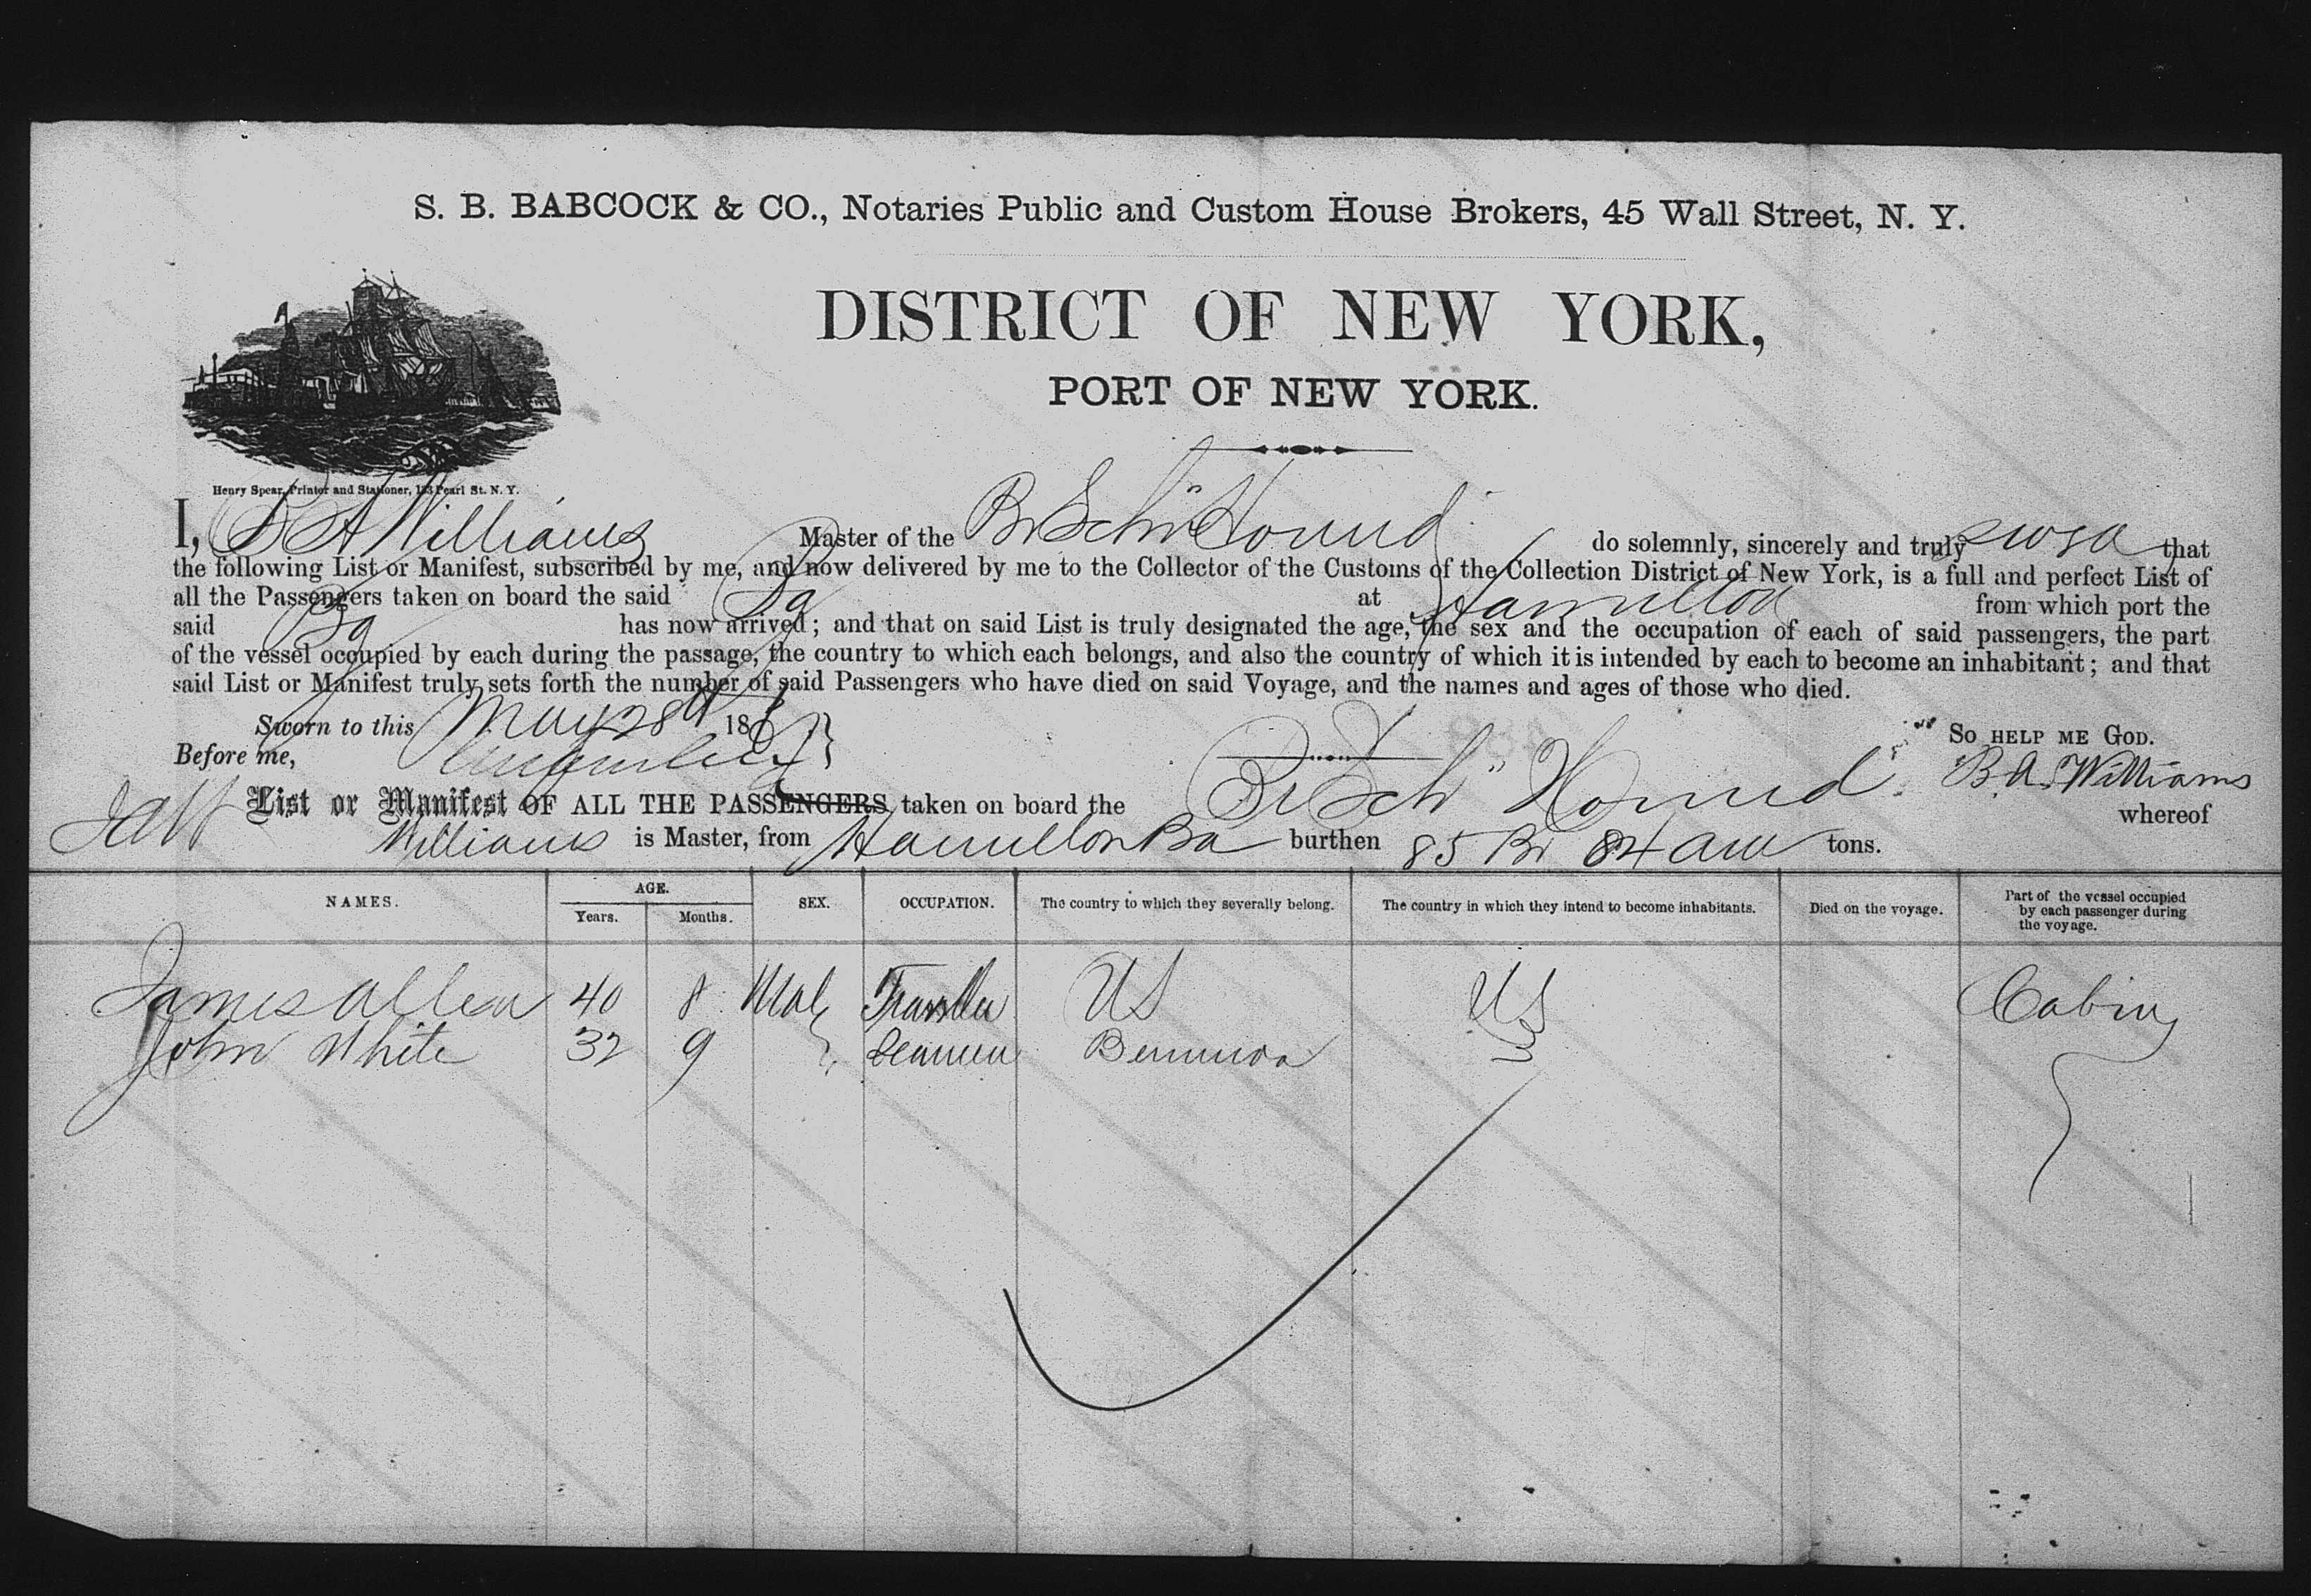 S. B. BABCOCK & CO., Notaries Public and Custom House Brokers, 45 Wall Street, N. Y.
DISTRICT OF NEW YORK,
PORT OF NEW YORK.
Henry Spear, Printer and Stationer, 133 Pearl St. N. Y.
I, B A Williams Master of the Br Schr "Hound" do solemnly, sincerely and truly swear that
the following List or Manifest, subscribed by me, and now delivered by me to the Collector of the Customs of the Collection District of New York, is a full and perfect List of
all the Passengers taken on board the said at Hamilton from which port the
said has now arrived; and that on said List is truly designated the age, the sex and the occupation of each of said passengers, the part
of the vessel occupied by each during the passage, the country to which each belongs, and also the country of which it is intended by each to become an inhabitant; and that
said List or Manifest truly sets forth the number of said Passengers who have died on said Voyage, and the names and ages of those who died.
Sworn to this May 28th 18
SO HELP ME GOD.
Before me,
B. A. Williams
List or Manifest OF ALL THE PASSENGERS taken on board the Br Schr "Hound" whereof
Williams is Master, from Hamilton Ba burthen 85 Br 84 Am tons.
NAMES. AGE. SEX. OCCUPATION. The country to which they severally belong. The country in which they intend to become inhabitants. Died on the voyage. Part of the vessel occupied by each passenger during the voyage.
Years. Months.
James Allen 40 8 Male Traveller US US Cabin
John White 32 9 " Seaman Bermuda "